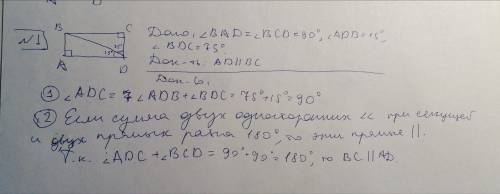 №1
B C
A D
75°
15°
Дано: ∠BAD = ∠BCD = 90°, ∠ADB = 15°,
∠BDC = 75°
Док-ть: AD||BC
Док-во:
① ∠ADC = ∠ADB + ∠BDC = 75° + 15° = 90°
② Если сумма двух односторонних ∠∠ при секущей
и двух прямых равна 180°, то эти прямые ||.
Т.к. ∠ADC + ∠BCD = 90° + 90° = 180°, то BC || AD.